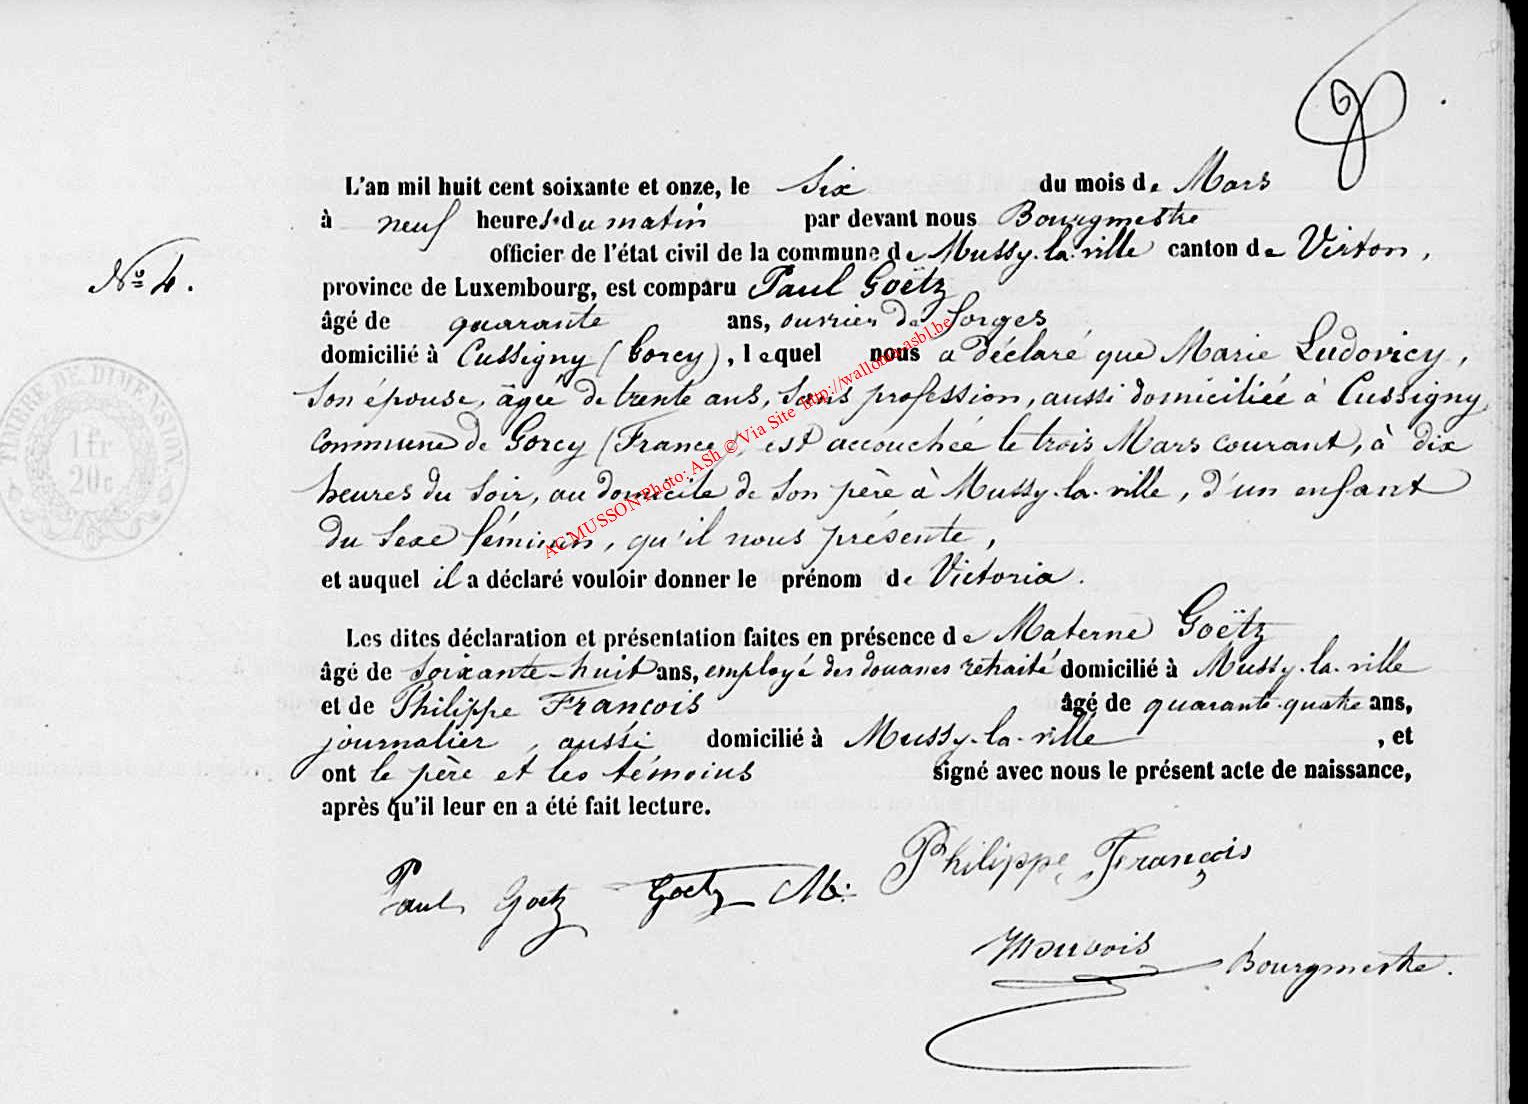 L'an mil huit cent soixante et onze, le six du mois de Mars
à neuf heures du matin par devant nous Bourgmestre
officier de l'état civil de la commune de Mussy-la-ville canton de Virton,
N° 4.
province de Luxembourg, est comparu Paul Goëtz
âgé de quarante ans, ouvrier de forges
domicilié à Cussigny (Gorcy), lequel nous a déclaré que Marie Ludovicy,
son épouse, âgée de trente ans, sans profession, aussi domiciliée à Cussigny
commune de Gorcy (France) est accouchée le trois Mars courant, à dix
heures du soir, au domicile de son père à Mussy-la-ville, d'un enfant
du sexe féminin, qu'il nous présente,
et auquel il a déclaré vouloir donner le prénom de Victoria.
Les dites déclaration et présentation faites en présence de Materne Goëtz
âgé de soixante-huit ans, employé des douanes retraité domicilié à Mussy-la-ville
et de Philippe François âgé de quarante-quatre ans,
journalier, aussi domicilié à Mussy-la-ville, et
ont le père et les témoins signé avec nous le présent acte de naissance,
après qu'il leur en a été fait lecture.
Philippe François
Paul Goetz Goetz M.
Bourgmestre.
TIMBRE DE DIMENSION
1 fr
20c
AC MUSSON Photo: ASh © Via Site http://wallonia.asbl.be